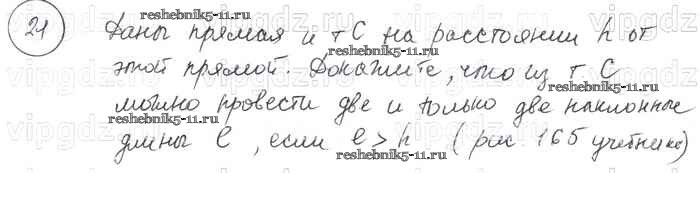 21 Даны прямая и т С на расстоянии h от
этой прямой. Докажите, что из т. С
можно провести две и только две наклонные
длины l, если l > h (рис 165 учебника)
reshebnik5-11.ru
reshebnik5-11.ru
reshebnik5-11.ru
reshebnik5-11.ru
vipgdz.ru